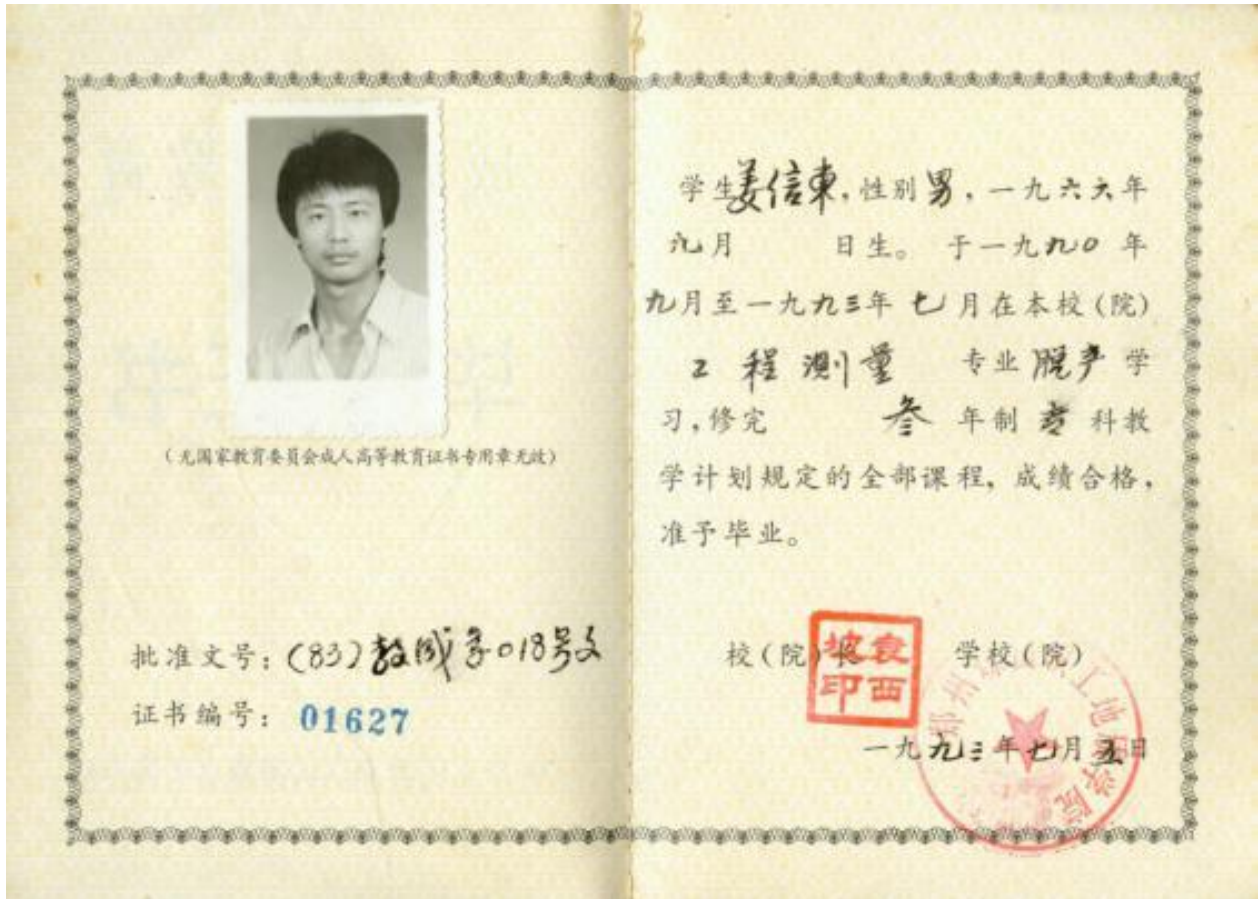 (无国家教育委员会成人高等教育证书专用章无效)
批准文号：(83)教成字018号文
证书编号：01627
学生姜信東，性别男，一九六六年
九月 日生。于一九九〇年
九月至一九九三年七月在本校(院)
工程测量 专业脱产学
习，修完 叁年制专科教
学计划规定的全部课程，成绩合格，
准予毕业。
校(院)长 学校(院)
袁西坡印
一九九三年七月五日
郑州 职工地质学院